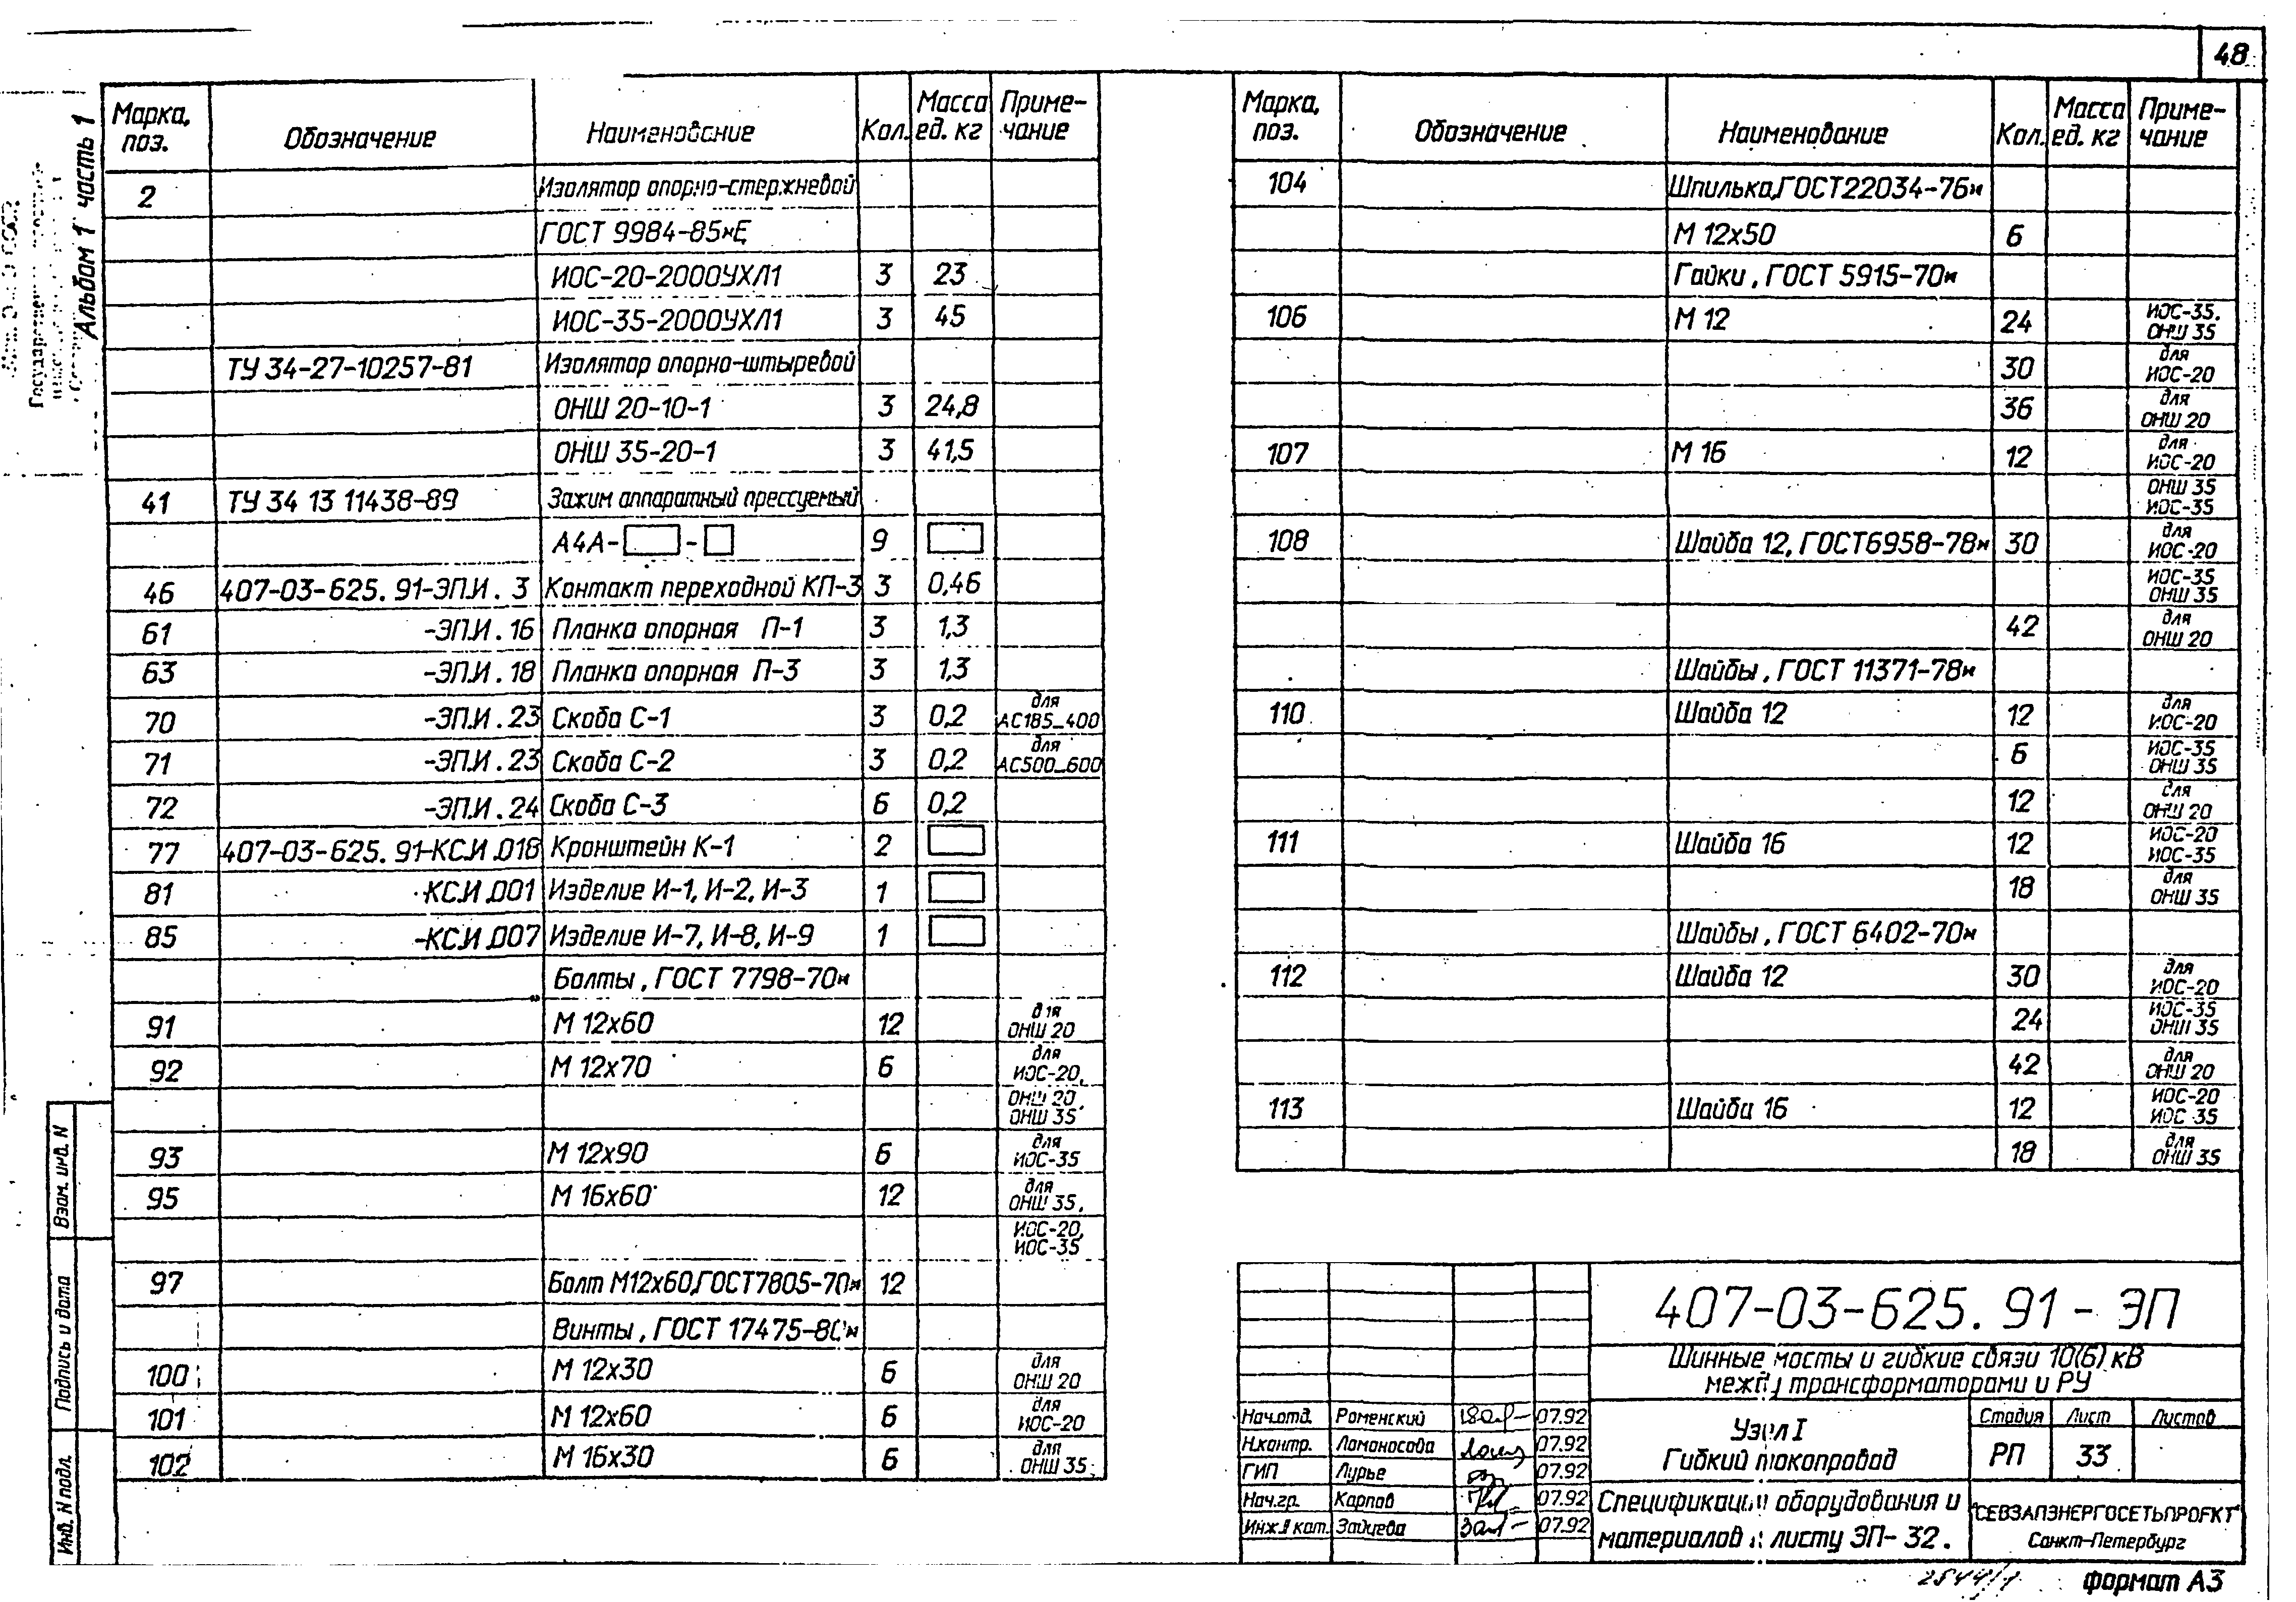 48
Альбом 1 часть 1
Марка, поз. Обозначение Наименование Кол. Масса ед. кг Приме-чание
2 Изолятор опорно-стержневой
ГОСТ 9984-85*Е
ИОС-20-2000УХЛ1 3 23
ИОС-35-2000УХЛ1 3 45
ТУ 34-27-10257-81 Изолятор опорно-штыревой
ОНШ 20-10-1 3 24,8
ОНШ 35-20-1 3 41,5
41 ТУ 34 13 11438-89 Зажим аппаратный прессуемый
А4А- - 9
46 407-03-625.91-ЭП.И.3 Контакт переходной КП-3 3 0,46
61 -ЭП.И.16 Планка опорная П-1 3 1,3
63 -ЭП.И.18 Планка опорная П-3 3 1,3
70 -ЭП.И.23 Скоба С-1 3 0,2 для АС185_400
71 -ЭП.И.23 Скоба С-2 3 0,2 для АС500_600
72 -ЭП.И.24 Скоба С-3 6 0,2
77 407-03-625.91-КС.И.018 Кронштейн К-1 2
81 -КС.И.001 Изделие И-1, И-2, И-3 1
85 -КС.И.007 Изделие И-7, И-8, И-9 1
Болты, ГОСТ 7798-70*
91 М 12х60 12 для ОНШ 20
92 М 12х70 6 для ИОС-20,
ОНШ 20 ОНШ 35
93 М 12х90 6 для ИОС-35
95 М 16х60 12 для ОНШ 35,
ИОС-20, ИОС-35
97 Болт М12х60,ГОСТ7805-70* 12
Винты, ГОСТ 17475-80*
100 М 12х30 6 для ОНШ 20
101 М 12х60 6 для ИОС-20
102 М 16х30 6 для ОНШ 35
Марка, поз. Обозначение Наименование Кол. Масса ед. кг Приме-чание
104 Шпилька,ГОСТ22034-76*
М 12х50 6
Гайки, ГОСТ 5915-70*
106 М 12 24 ИОС-35. ОНШ 35
30 для ИОС-20
36 для ОНШ 20
107 М 16 12 для ИОС-20
ОНШ 35 ИОС-35
108 Шайба 12, ГОСТ6958-78* 30 для ИОС-20
ИОС-35 ОНШ 35
42 для ОНШ 20
Шайбы, ГОСТ 11371-78*
110 Шайба 12 12 для ИОС-20
6 ИОС-35 ОНШ 35
12 для ОНШ 20
111 Шайба 16 12 ИОС-20 ИОС-35
18 для ОНШ 35
Шайбы, ГОСТ 6402-70*
112 Шайба 12 30 для ИОС-20
24 ИОС-35 ОНШ 35
42 для ОНШ 20
113 Шайба 16 12 ИОС-20 ИОС 35
18 для ОНШ 35
Взам. инв. N
Подпись и дата
Инв. N подл.
407-03-625.91-ЭП
Шинные мосты и гибкие связи 10(6) кВ
между трансформаторами и РУ
Нач.отд. Роменский 07.92
Н.контр. Ломоносова 07.92
ГИП Лурье 07.92
Нач.гр. Карпов 07.92
Инж.II кат. Зайцева 07.92
Узел I
Гибкий токопровод
Стадия Лист Листов
РП 33
Спецификация оборудования и
материалов к листу ЭП-32.
"СЕВЗАПЭНЕРГОСЕТЬПРОЕКТ"
Санкт-Петербург
2544/1
формат А3